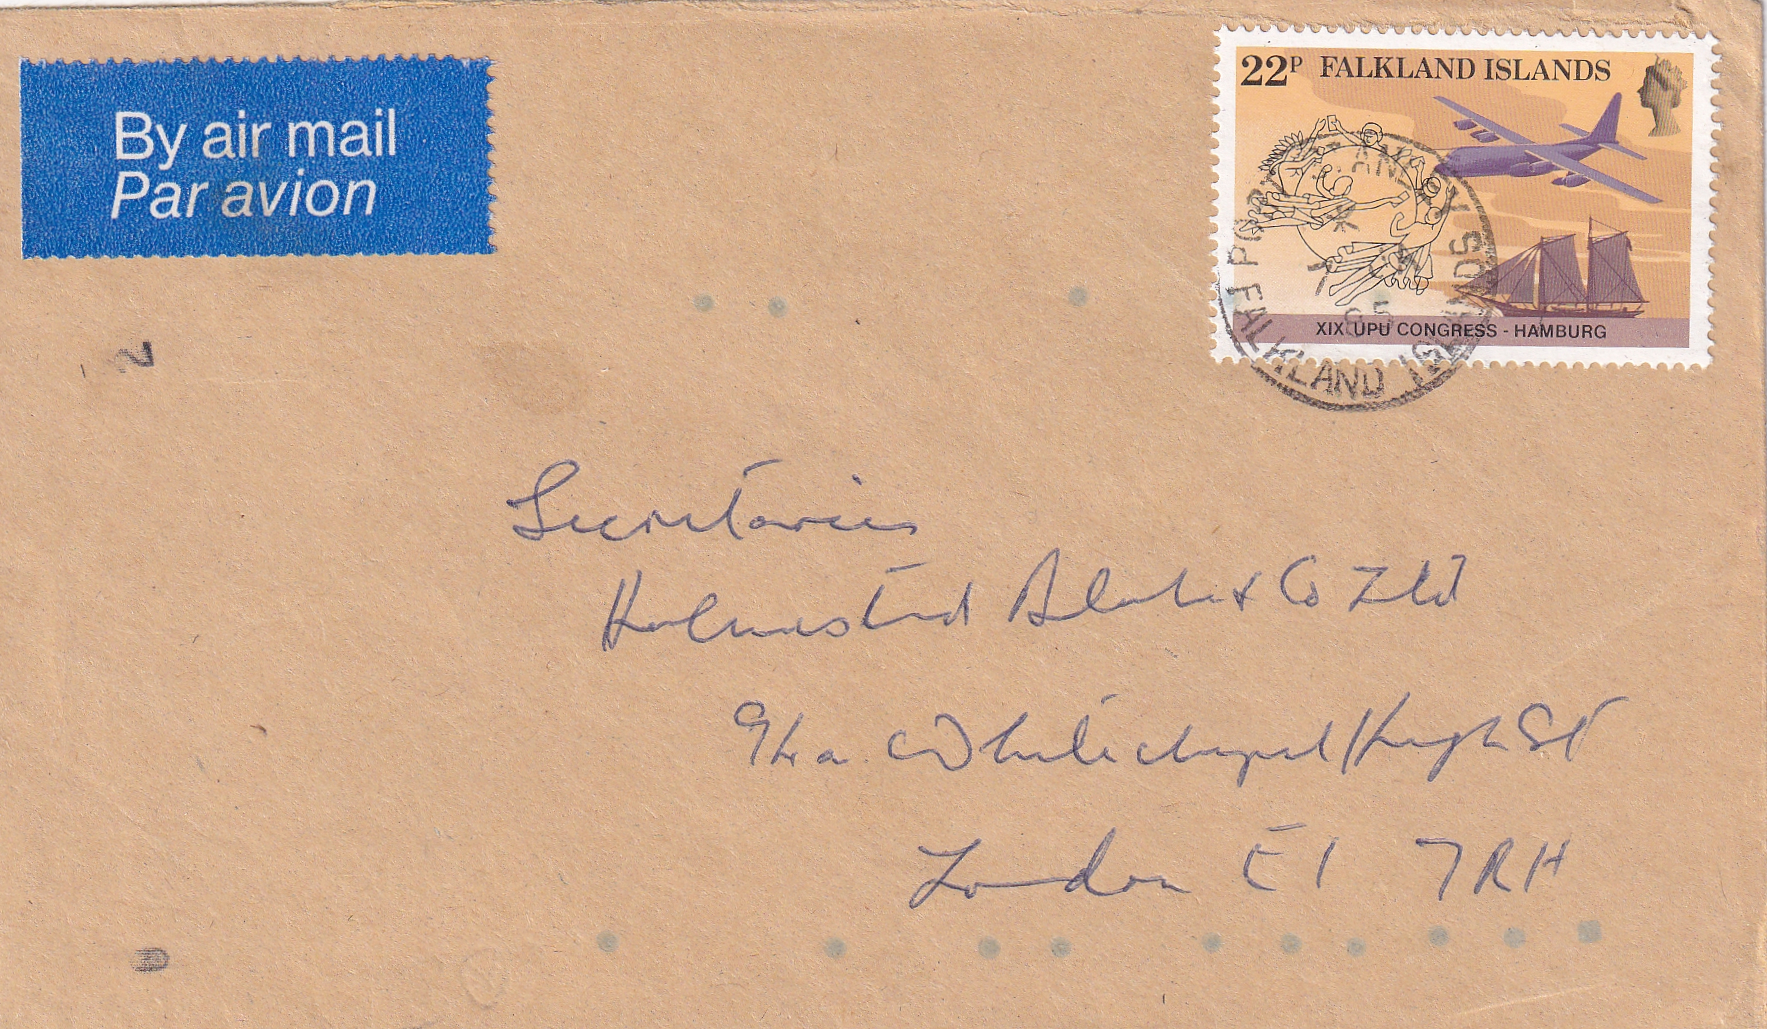 By air mail
Par avion
22P FALKLAND ISLANDS
XIX UPU CONGRESS - HAMBURG
PORT STANLEY
FALKLAND ISL
85
Secretaries
Holmested Blake & Co Ltd
94a Whitechapel High St
London E1 7RH